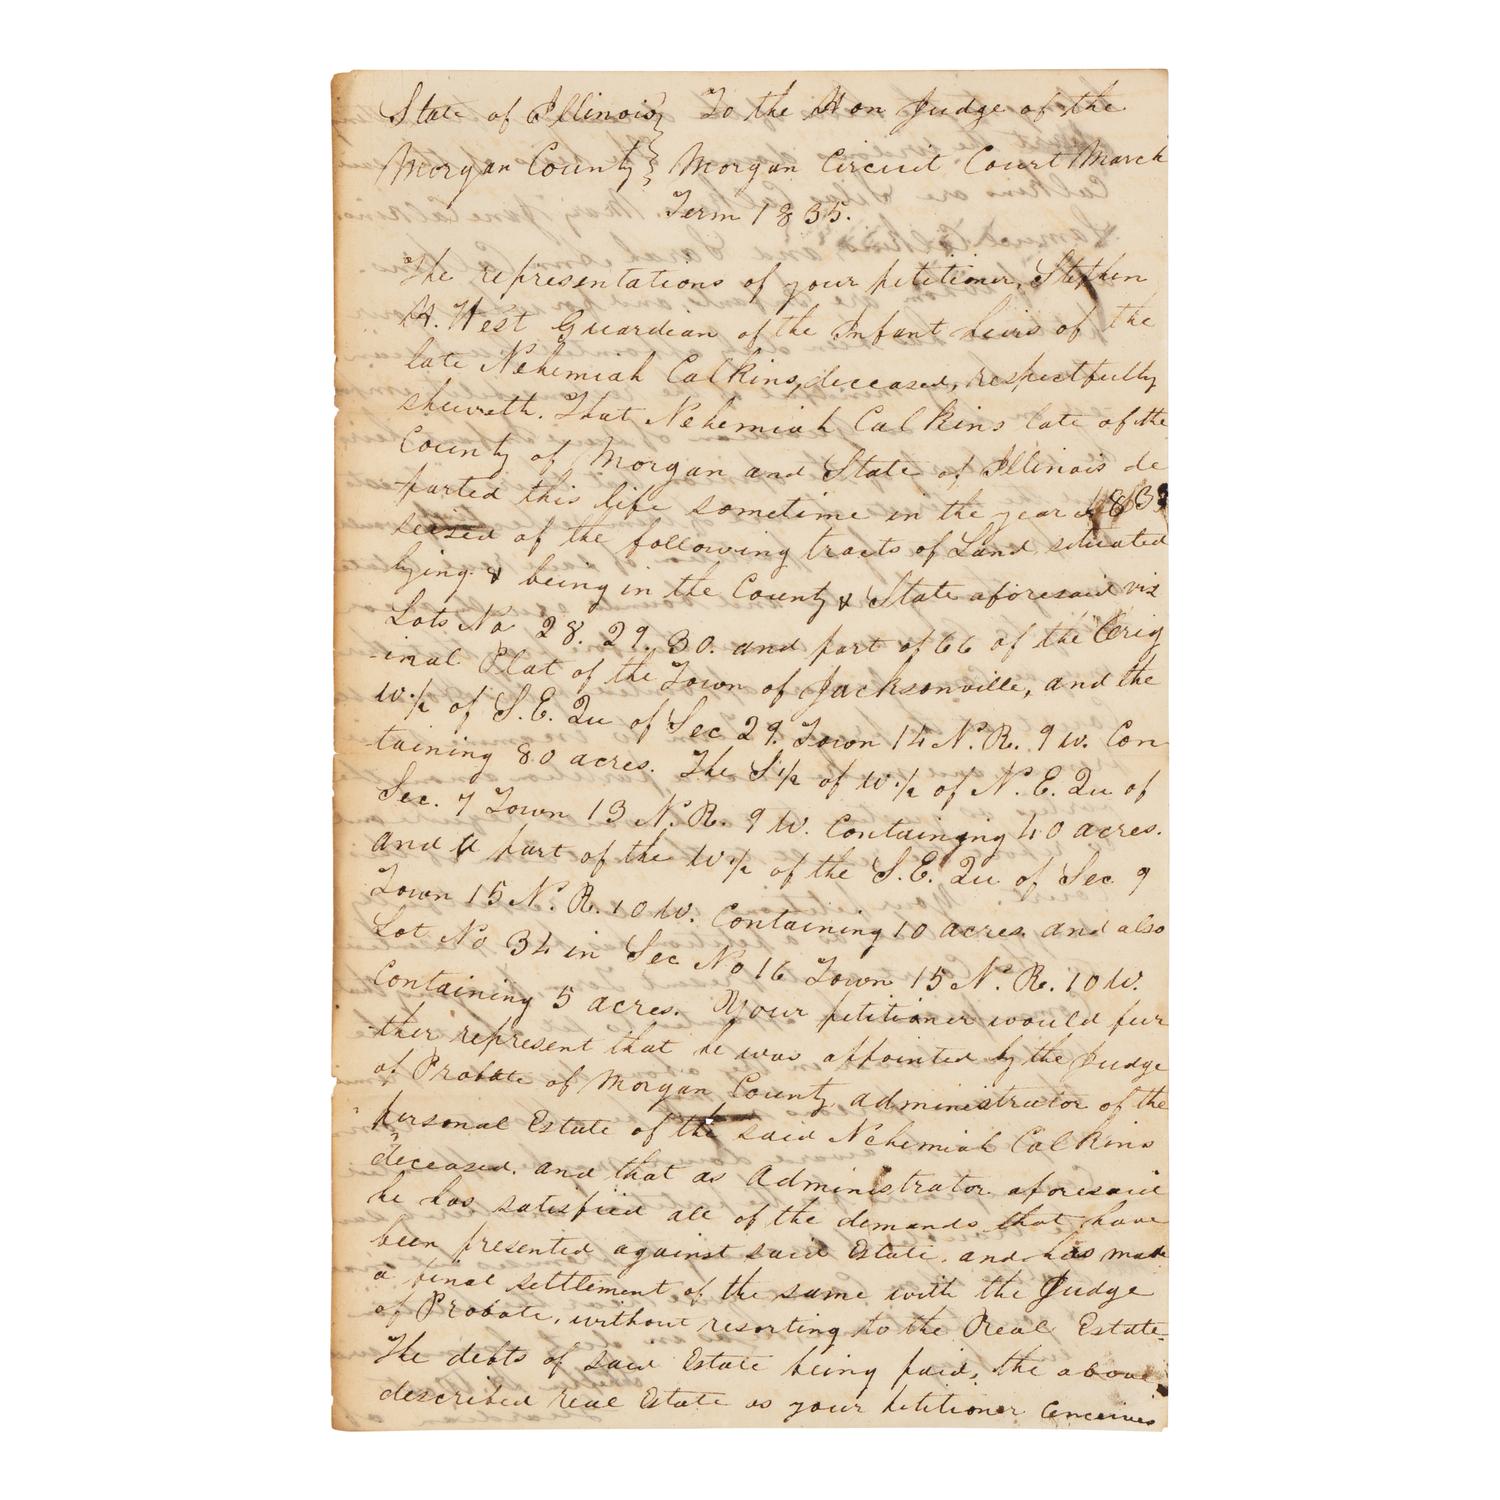 State of Illinois } To the Hon Judge of the
Morgan County } Morgan Circuit Court March
Term 1835.
The representations of your petitioner, Stephen
H. West Guardian of the Infant heirs of the
late Nehemiah Calkins, deceased, respectfully
sheweth. That Nehemiah Calkins late of the
County of Morgan and State of Illinois de
parted this life sometime in the year 1833
seized of the following tracts of Land situated
lying & being in the County & State aforesaid viz
Lots No 28. 29. 30. and part of 66 of the Orig
-inal Plat of the Town of Jacksonville, and the
W.½ of S.E. Qu of Sec 29. Town 14 N. R. 9 W. Con
taining 80 acres. The S½ of W.½ of N.E. Qu of
Sec. 7 Town 13 N. R. 9 W. Containing 40 acres.
and a part of the W½ of the S.E. Qu of Sec 9
Town 15 N. R. 10 W. Containing 10 acres and also
Lot No 34 in Sec No 16 Town 15 N. R. 10 W.
Containing 5 acres. Your petitioner would fur
-ther represent that he was appointed by the Judge
of Probate of Morgan County administrator of the
personal Estate of the said Nehemiah Calkins
deceased. and that as Administrator aforesaid
he has satisfied all of the demands that have
been presented against said Estate. and has made
a final settlement of the same with the Judge
of Probate, without resorting to the Real Estate
The debts of said Estate being paid, the above
described real Estate as your petitioner Conceives